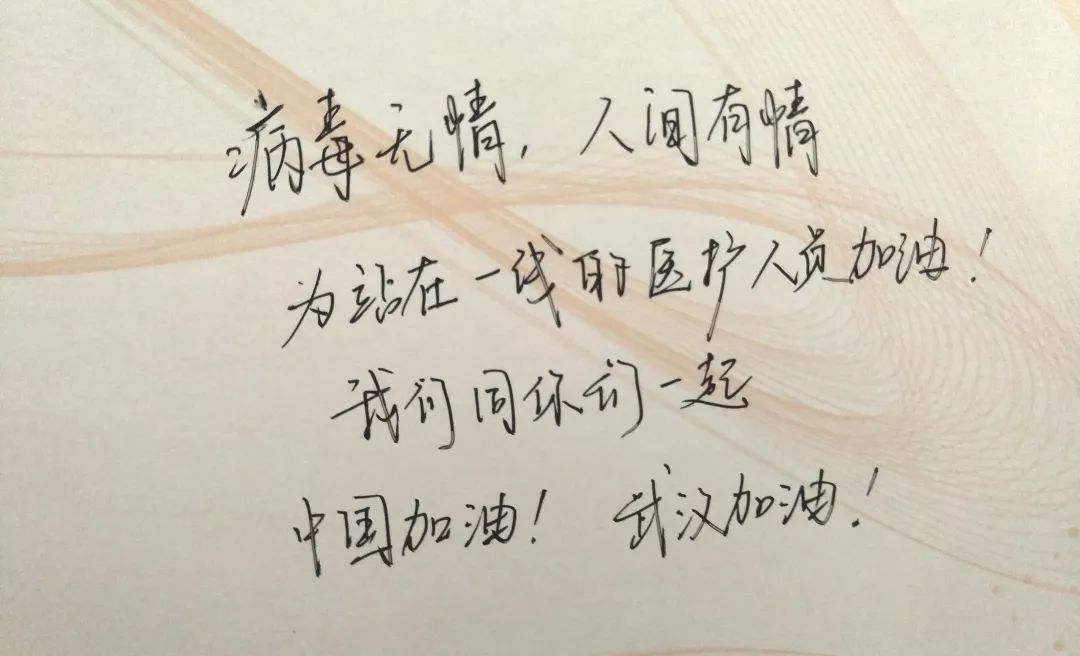 病毒无情，人间有情
为站在一线的医护人员加油！
我们同你们一起
中国加油！ 武汉加油！